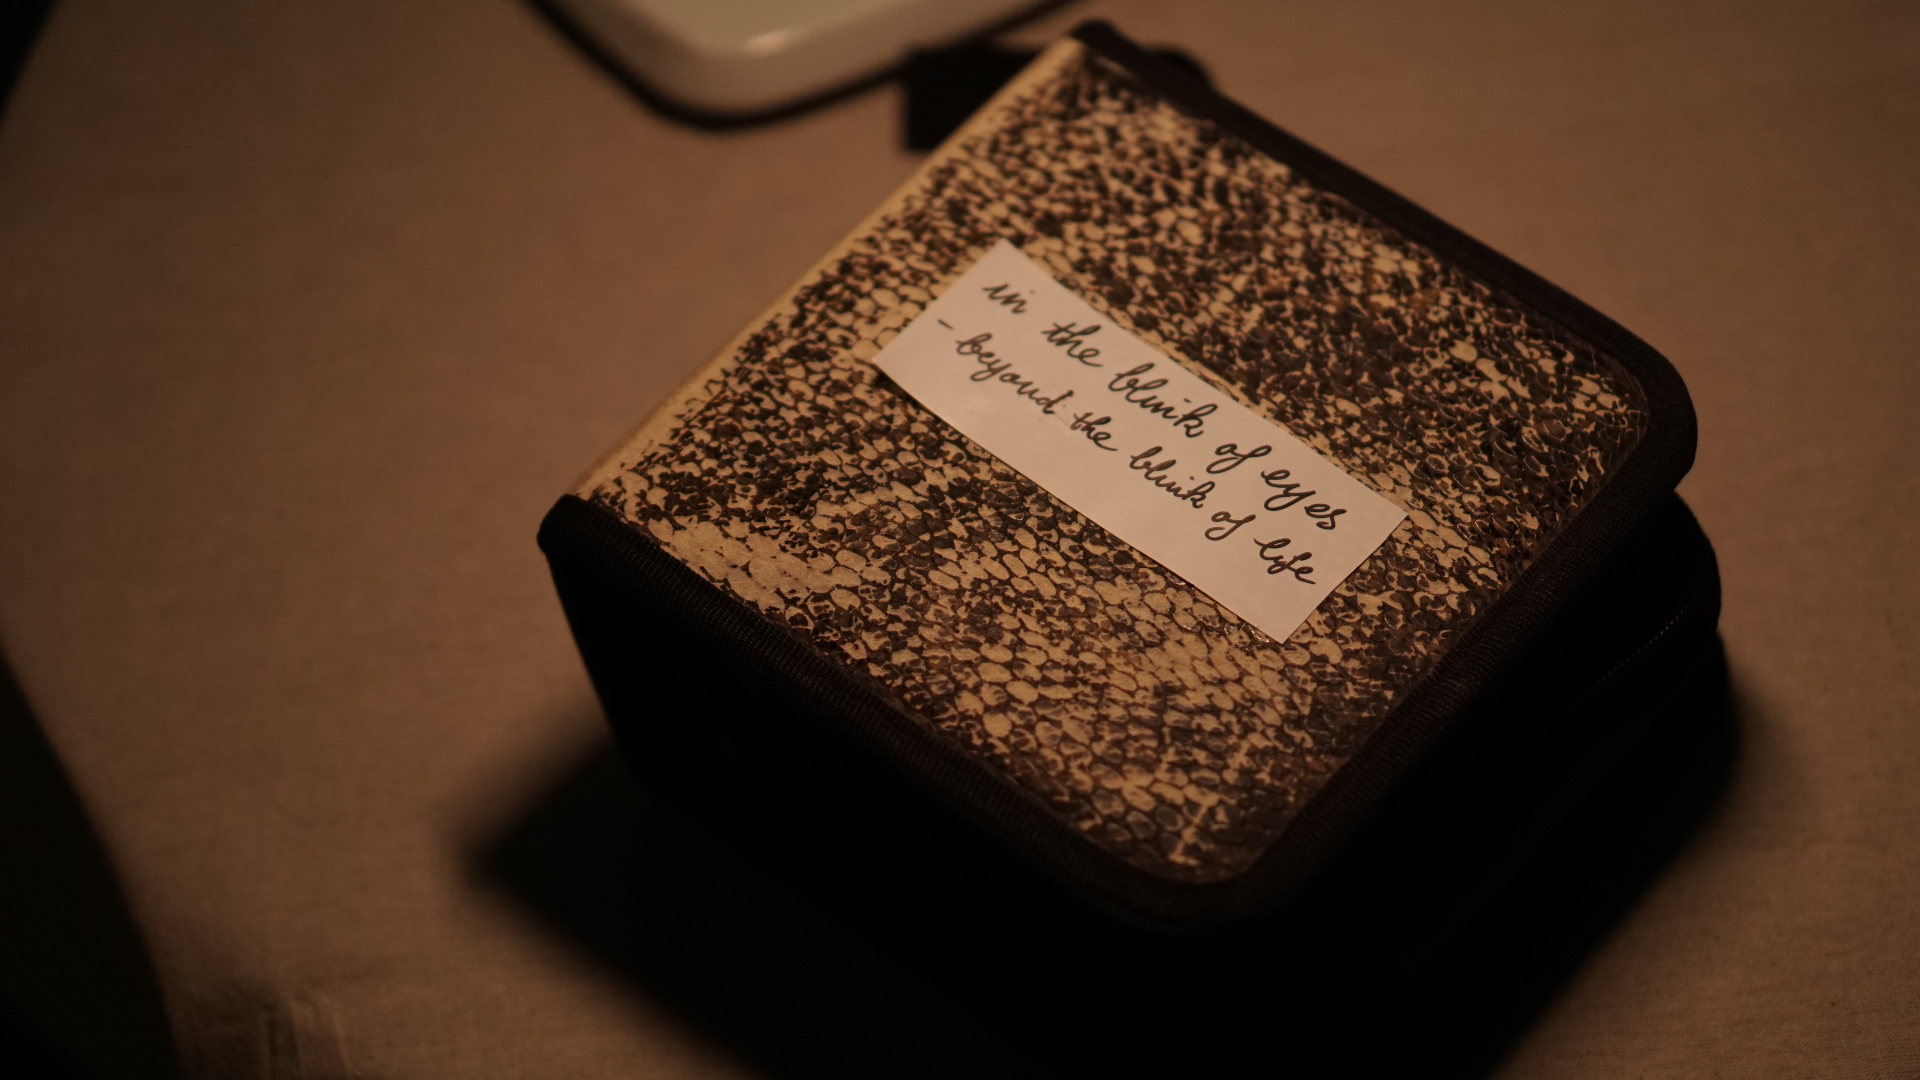 in the blink of eyes
- beyond the blink of life